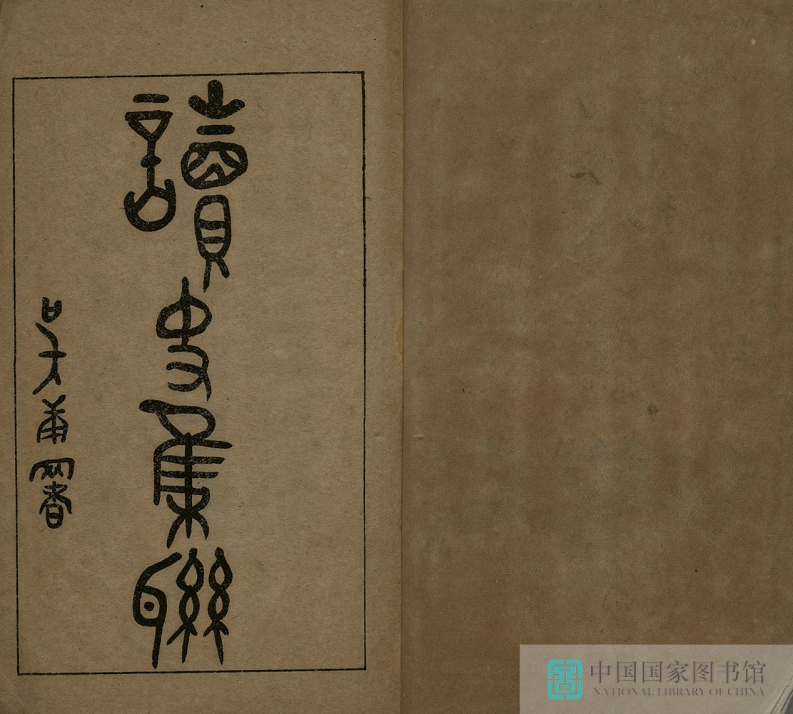 讀史集聯
吳 署
中国国家图书馆
NATIONAL LIBRARY OF CHINA